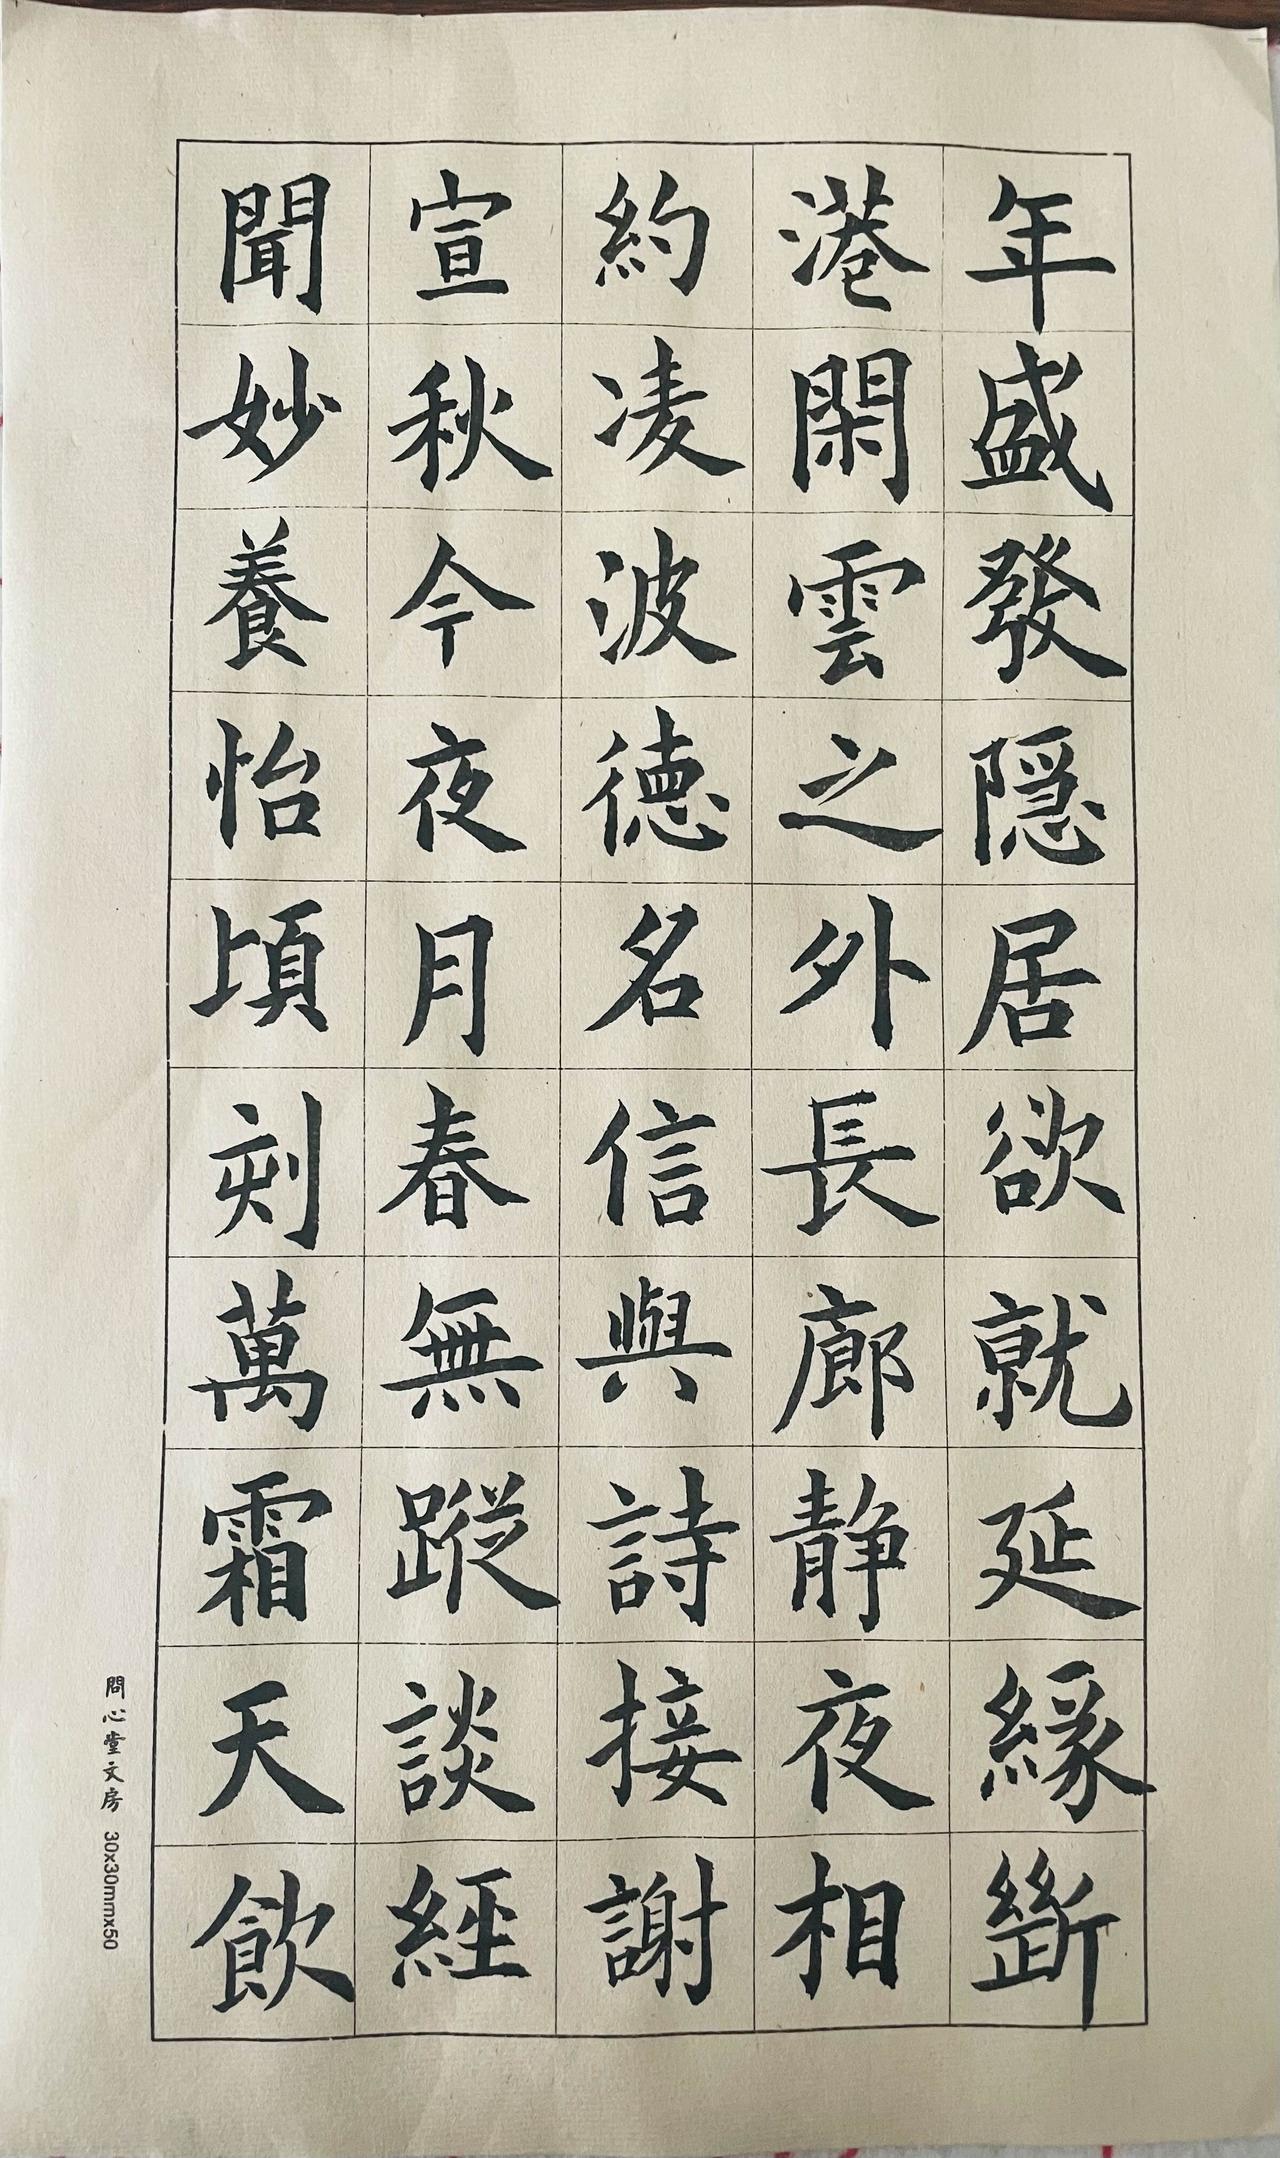 年盛發隱居欲就延緣斷
港閑雲之外長廊静夜相
約凌波德名信與詩接謝
宣秋今夜月春無蹤談經
聞妙養怡頃刻萬霜天飲
問心堂文房 30x30mmx50